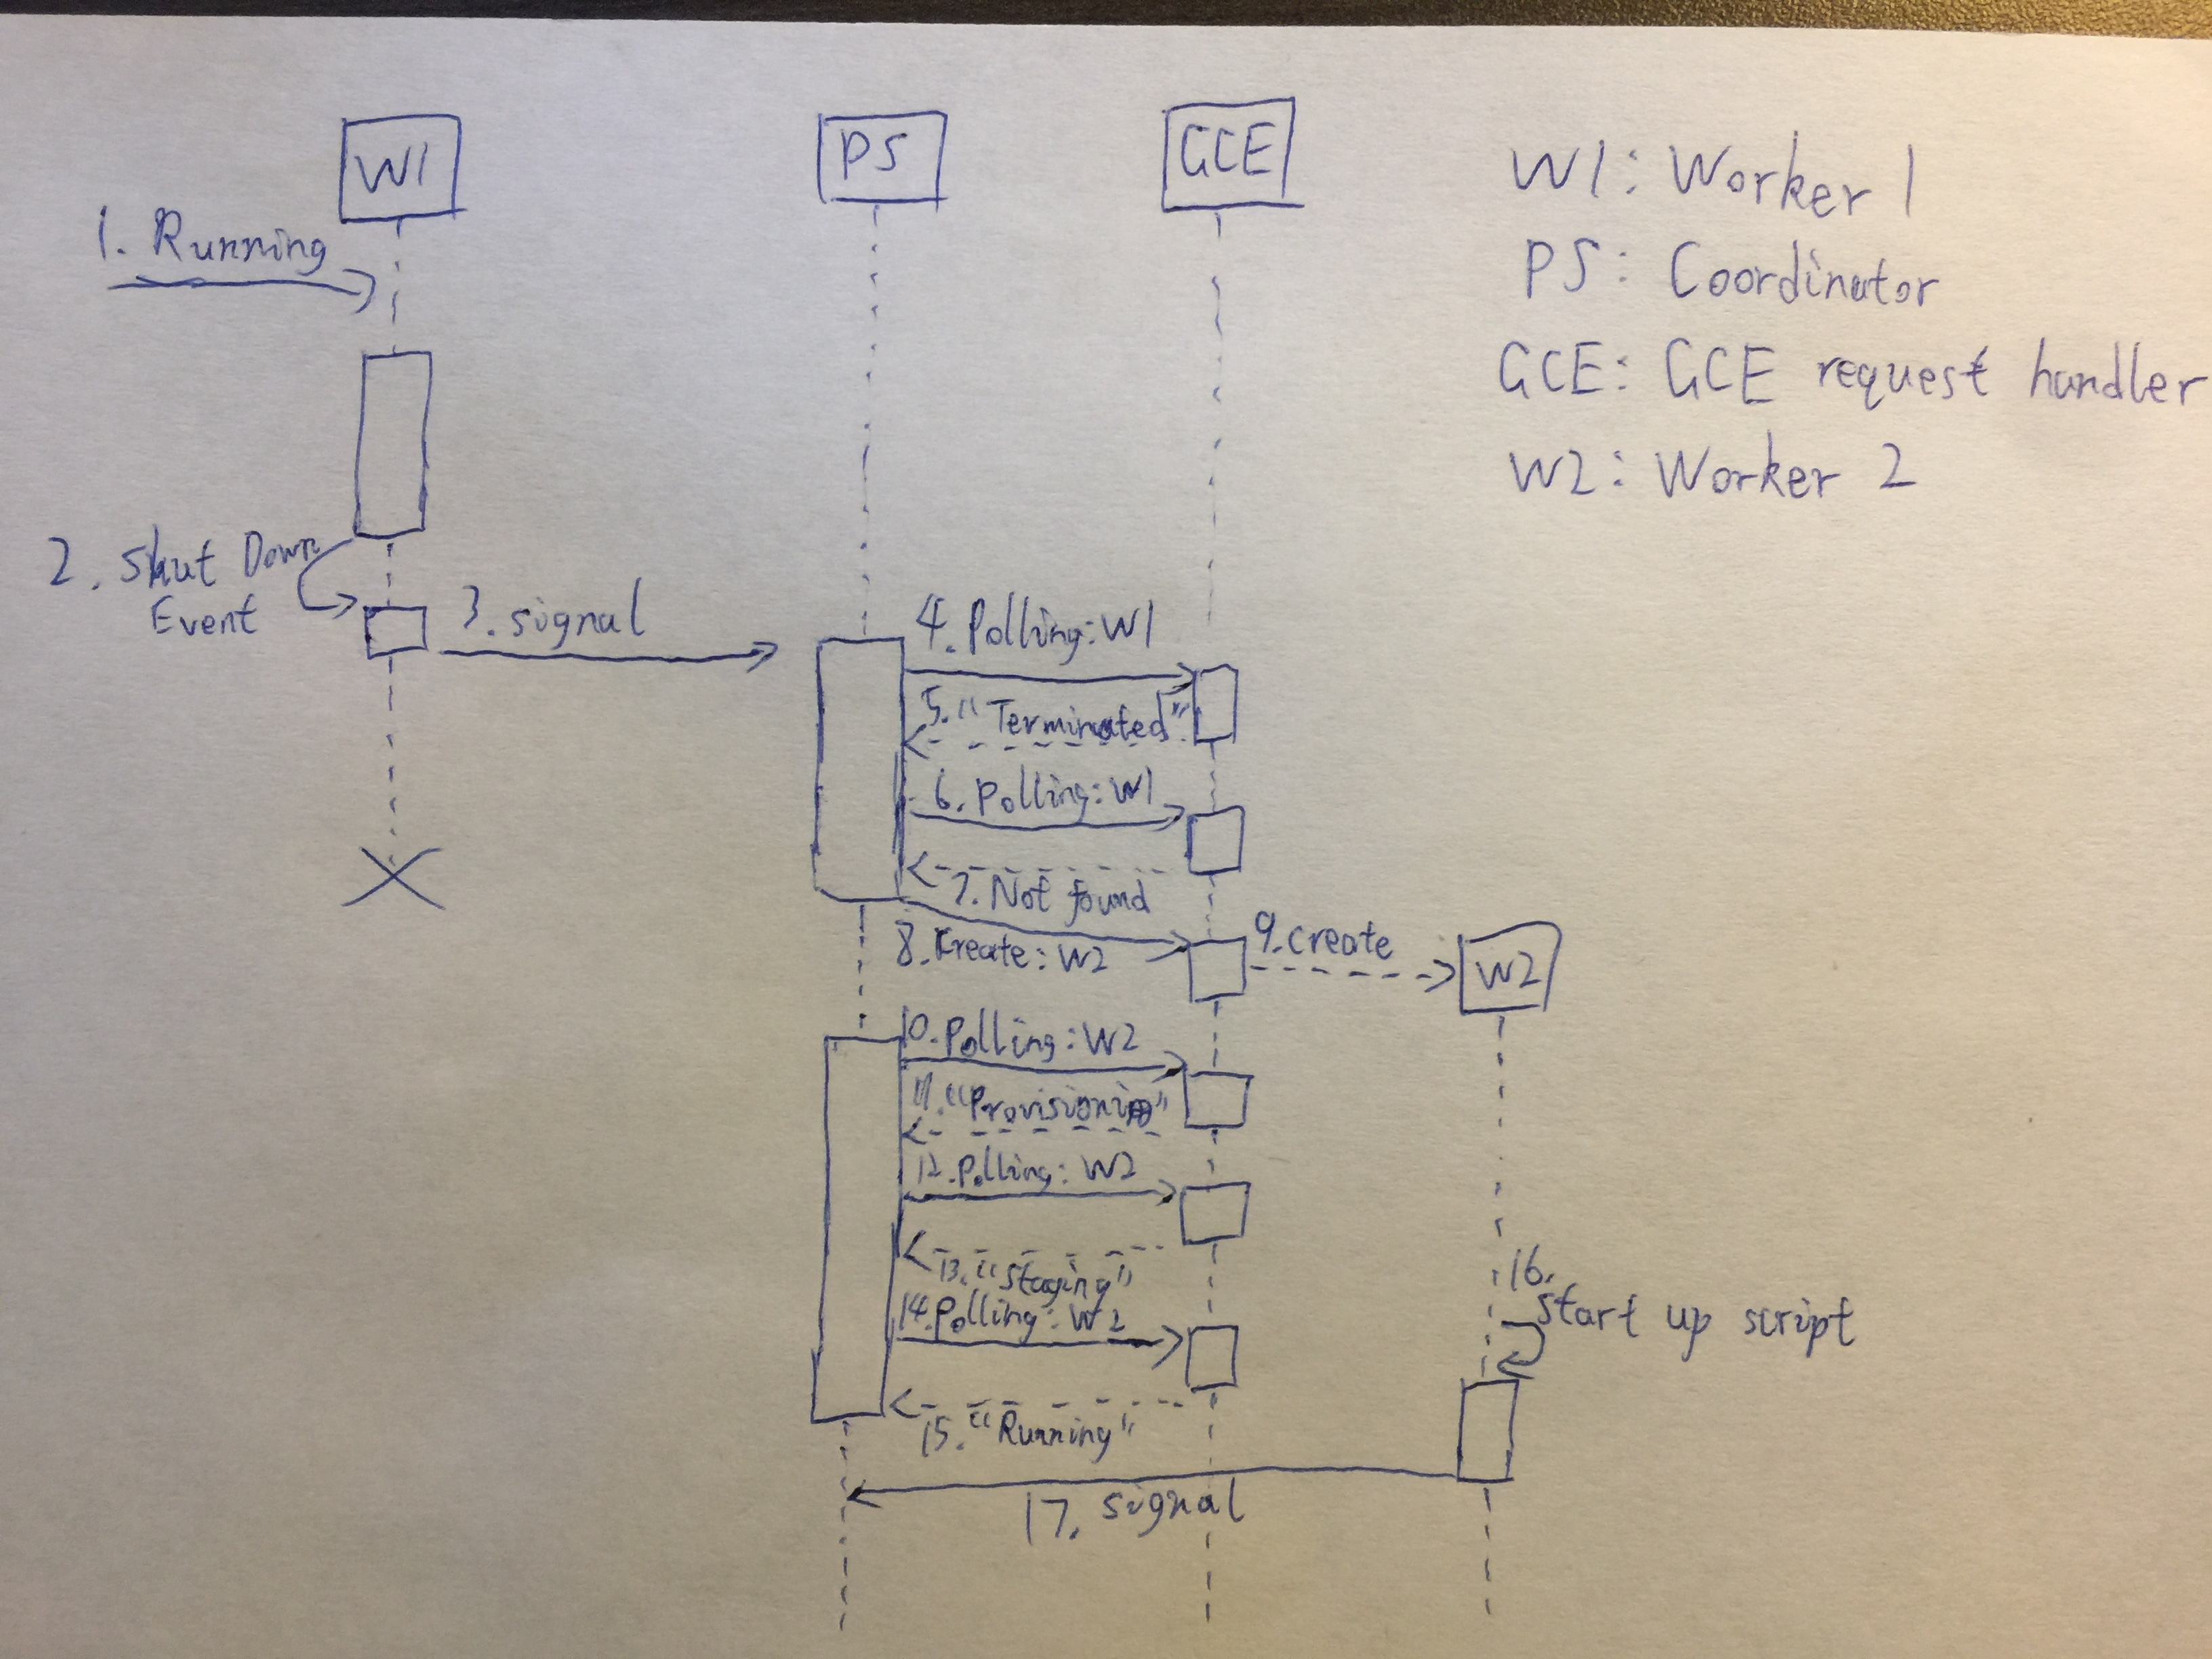 W1
PS
GCE
W1: Worker 1
PS: Coordinator
GCE: GCE request handler
W2: Worker 2
1. Running
2. Shut Down
Event
3. signal
4. Polling: W1
5. "Terminated"
6. Polling: W1
7. Not found
8. Create: W2
9. create
W2
10. Polling: W2
11. "Provisioning"
12. Polling: W2
13. "Staging"
14. Polling: W2
15. "Running"
16.
Start up script
17. signal